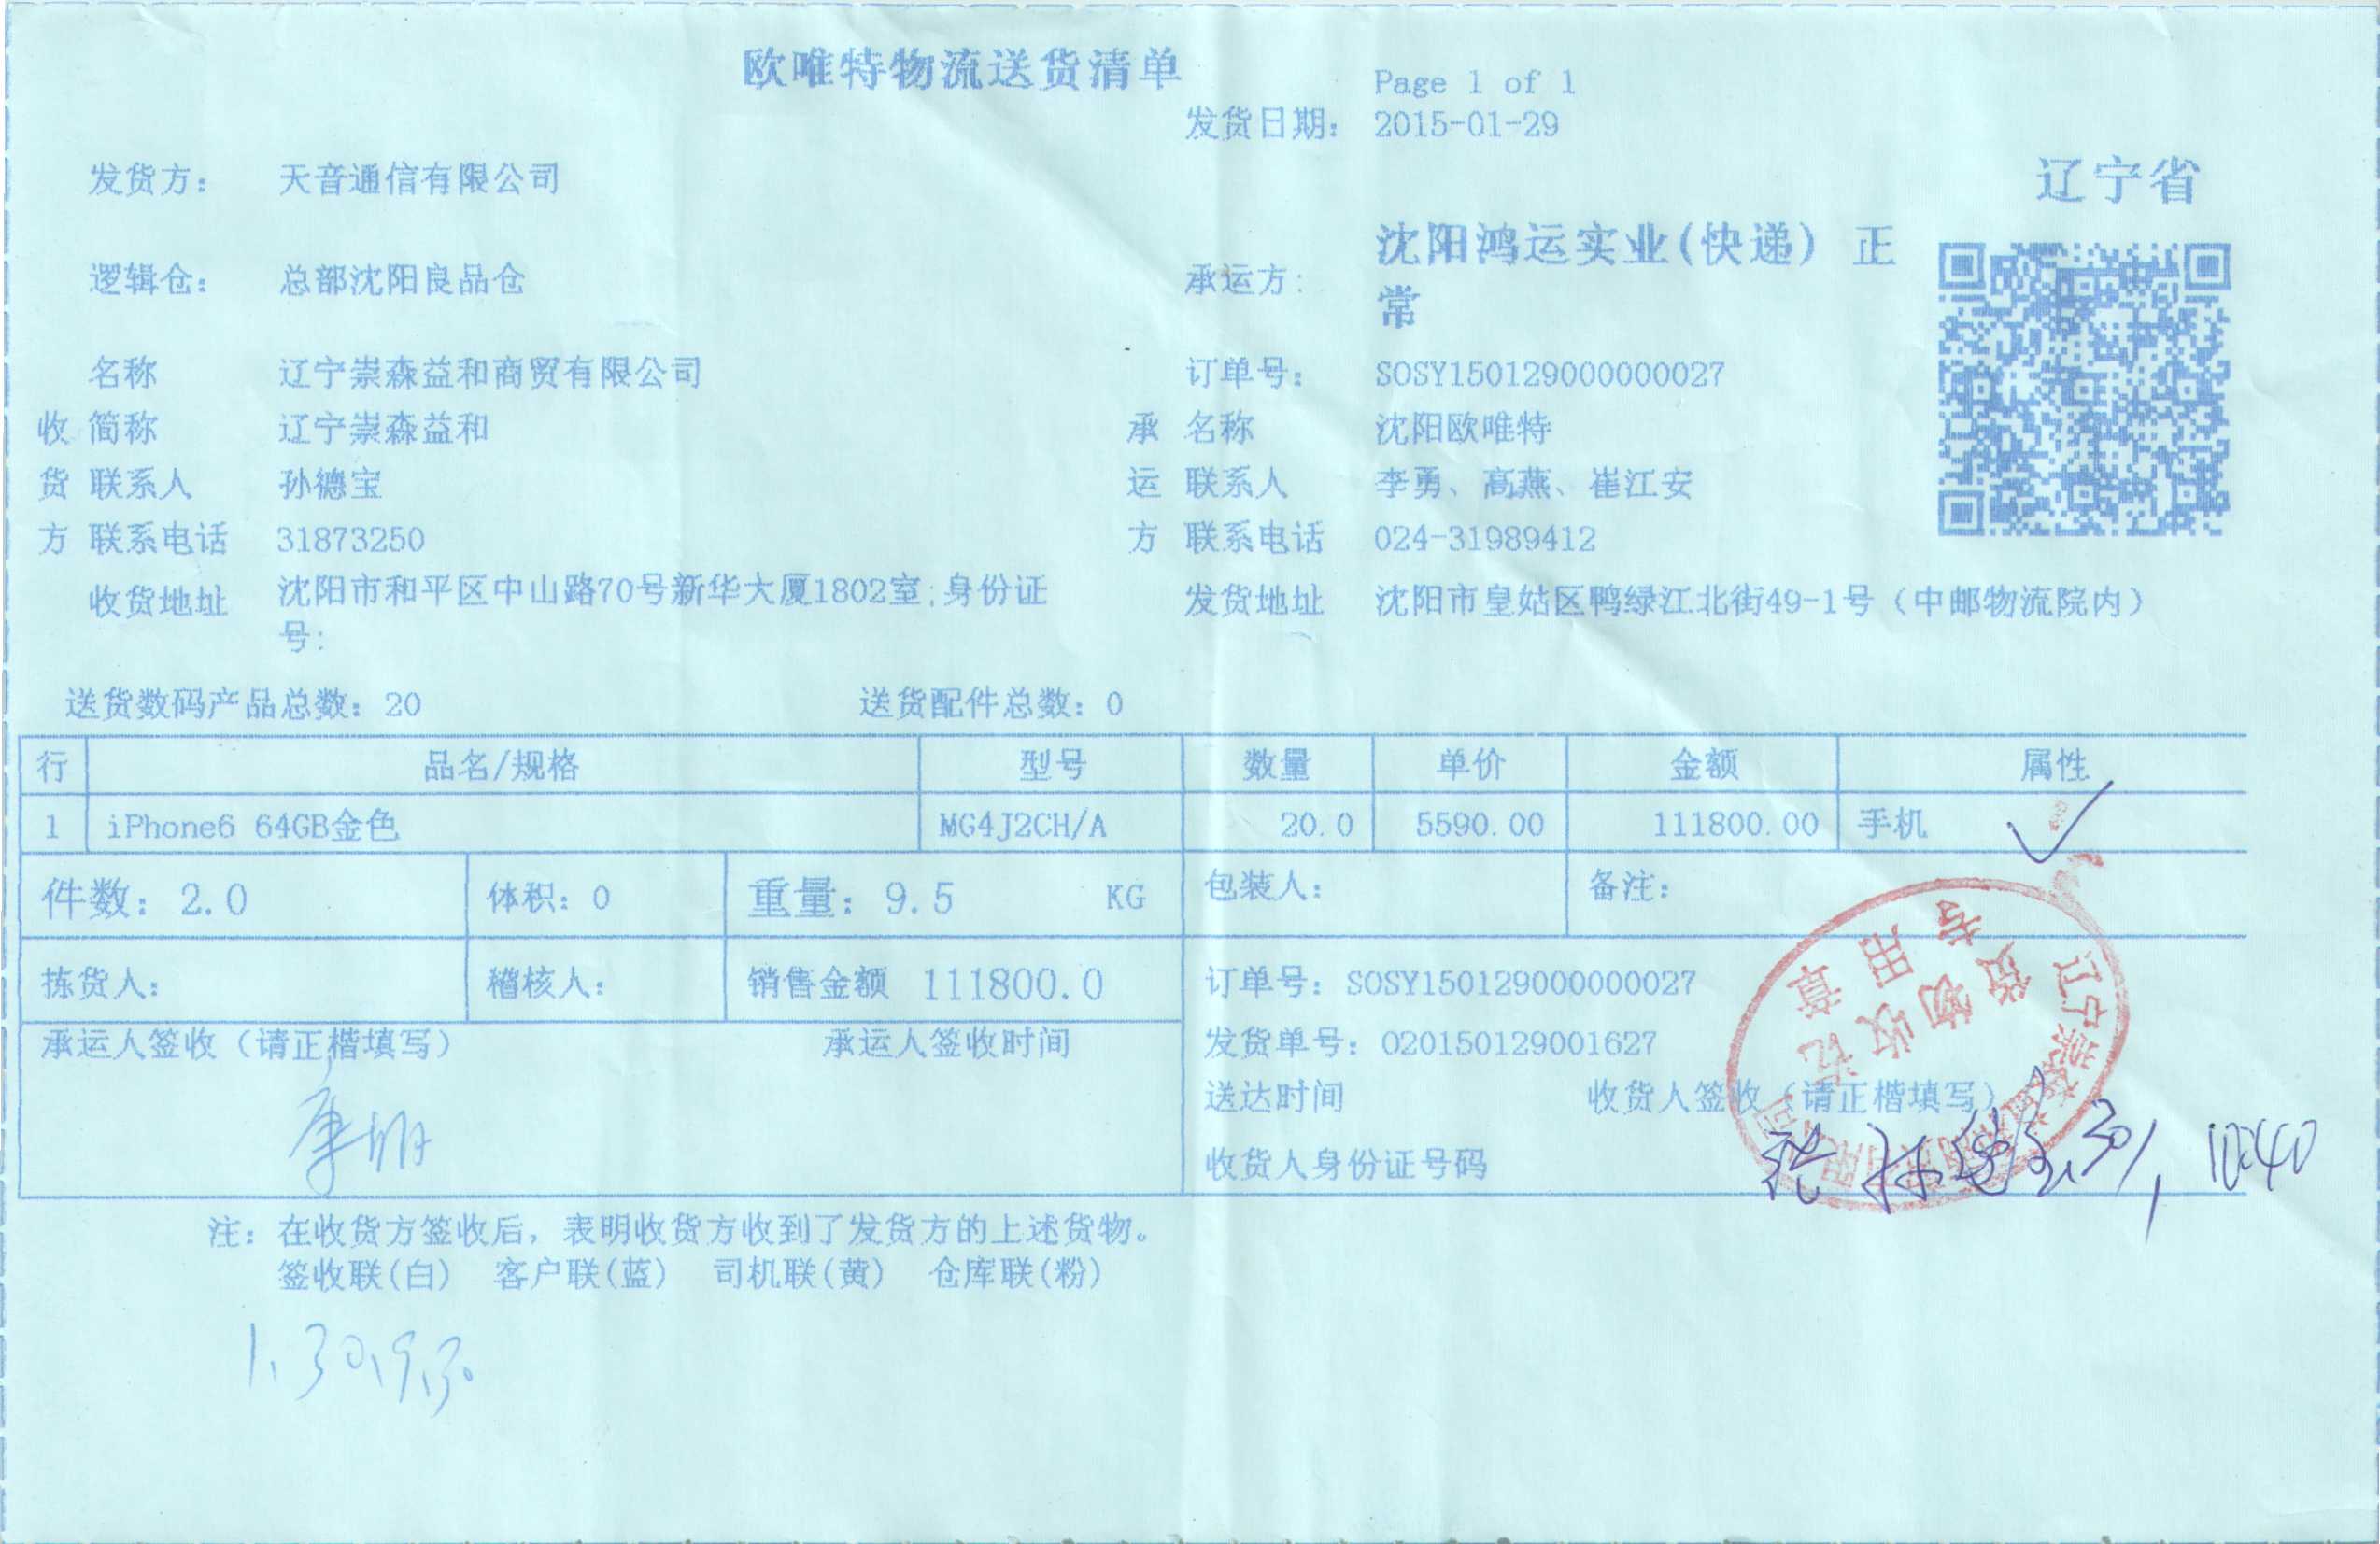 欧唯特物流送货清单
Page 1 of 1
发货日期： 2015-01-29
发货方： 天音通信有限公司
辽宁省
逻辑仓： 总部沈阳良品仓
承运方： 沈阳鸿运实业(快递) 正
常
名称 辽宁崇森益和商贸有限公司
订单号： SOSY150129000000027
收 简称 辽宁崇森益和
承 名称 沈阳欧唯特
货 联系人 孙德宝
运 联系人 李勇、高燕、崔江安
方 联系电话 31873250
方 联系电话 024-31989412
收货地址 沈阳市和平区中山路70号新华大厦1802室;身份证
号:
发货地址 沈阳市皇姑区鸭绿江北街49-1号（中邮物流院内）
送货数码产品总数： 20 送货配件总数： 0
行 品名/规格 型号 数量 单价 金额 属性
1 iPhone6 64GB金色 MG4J2CH/A 20.0 5590.00 111800.00 手机
件数： 2.0 体积： 0 重量： 9.5 KG 包装人： 备注：
拣货人： 稽核人： 销售金额 111800.0 订单号： SOSY150129000000027
承运人签收（请正楷填写） 承运人签收时间
发货单号： 020150129001627
送达时间 收货人签收（请正楷填写）
收货人身份证号码
10:40
注： 在收货方签收后，表明收货方收到了发货方的上述货物。
签收联(白) 客户联(蓝) 司机联(黄) 仓库联(粉)
1.30.9.30